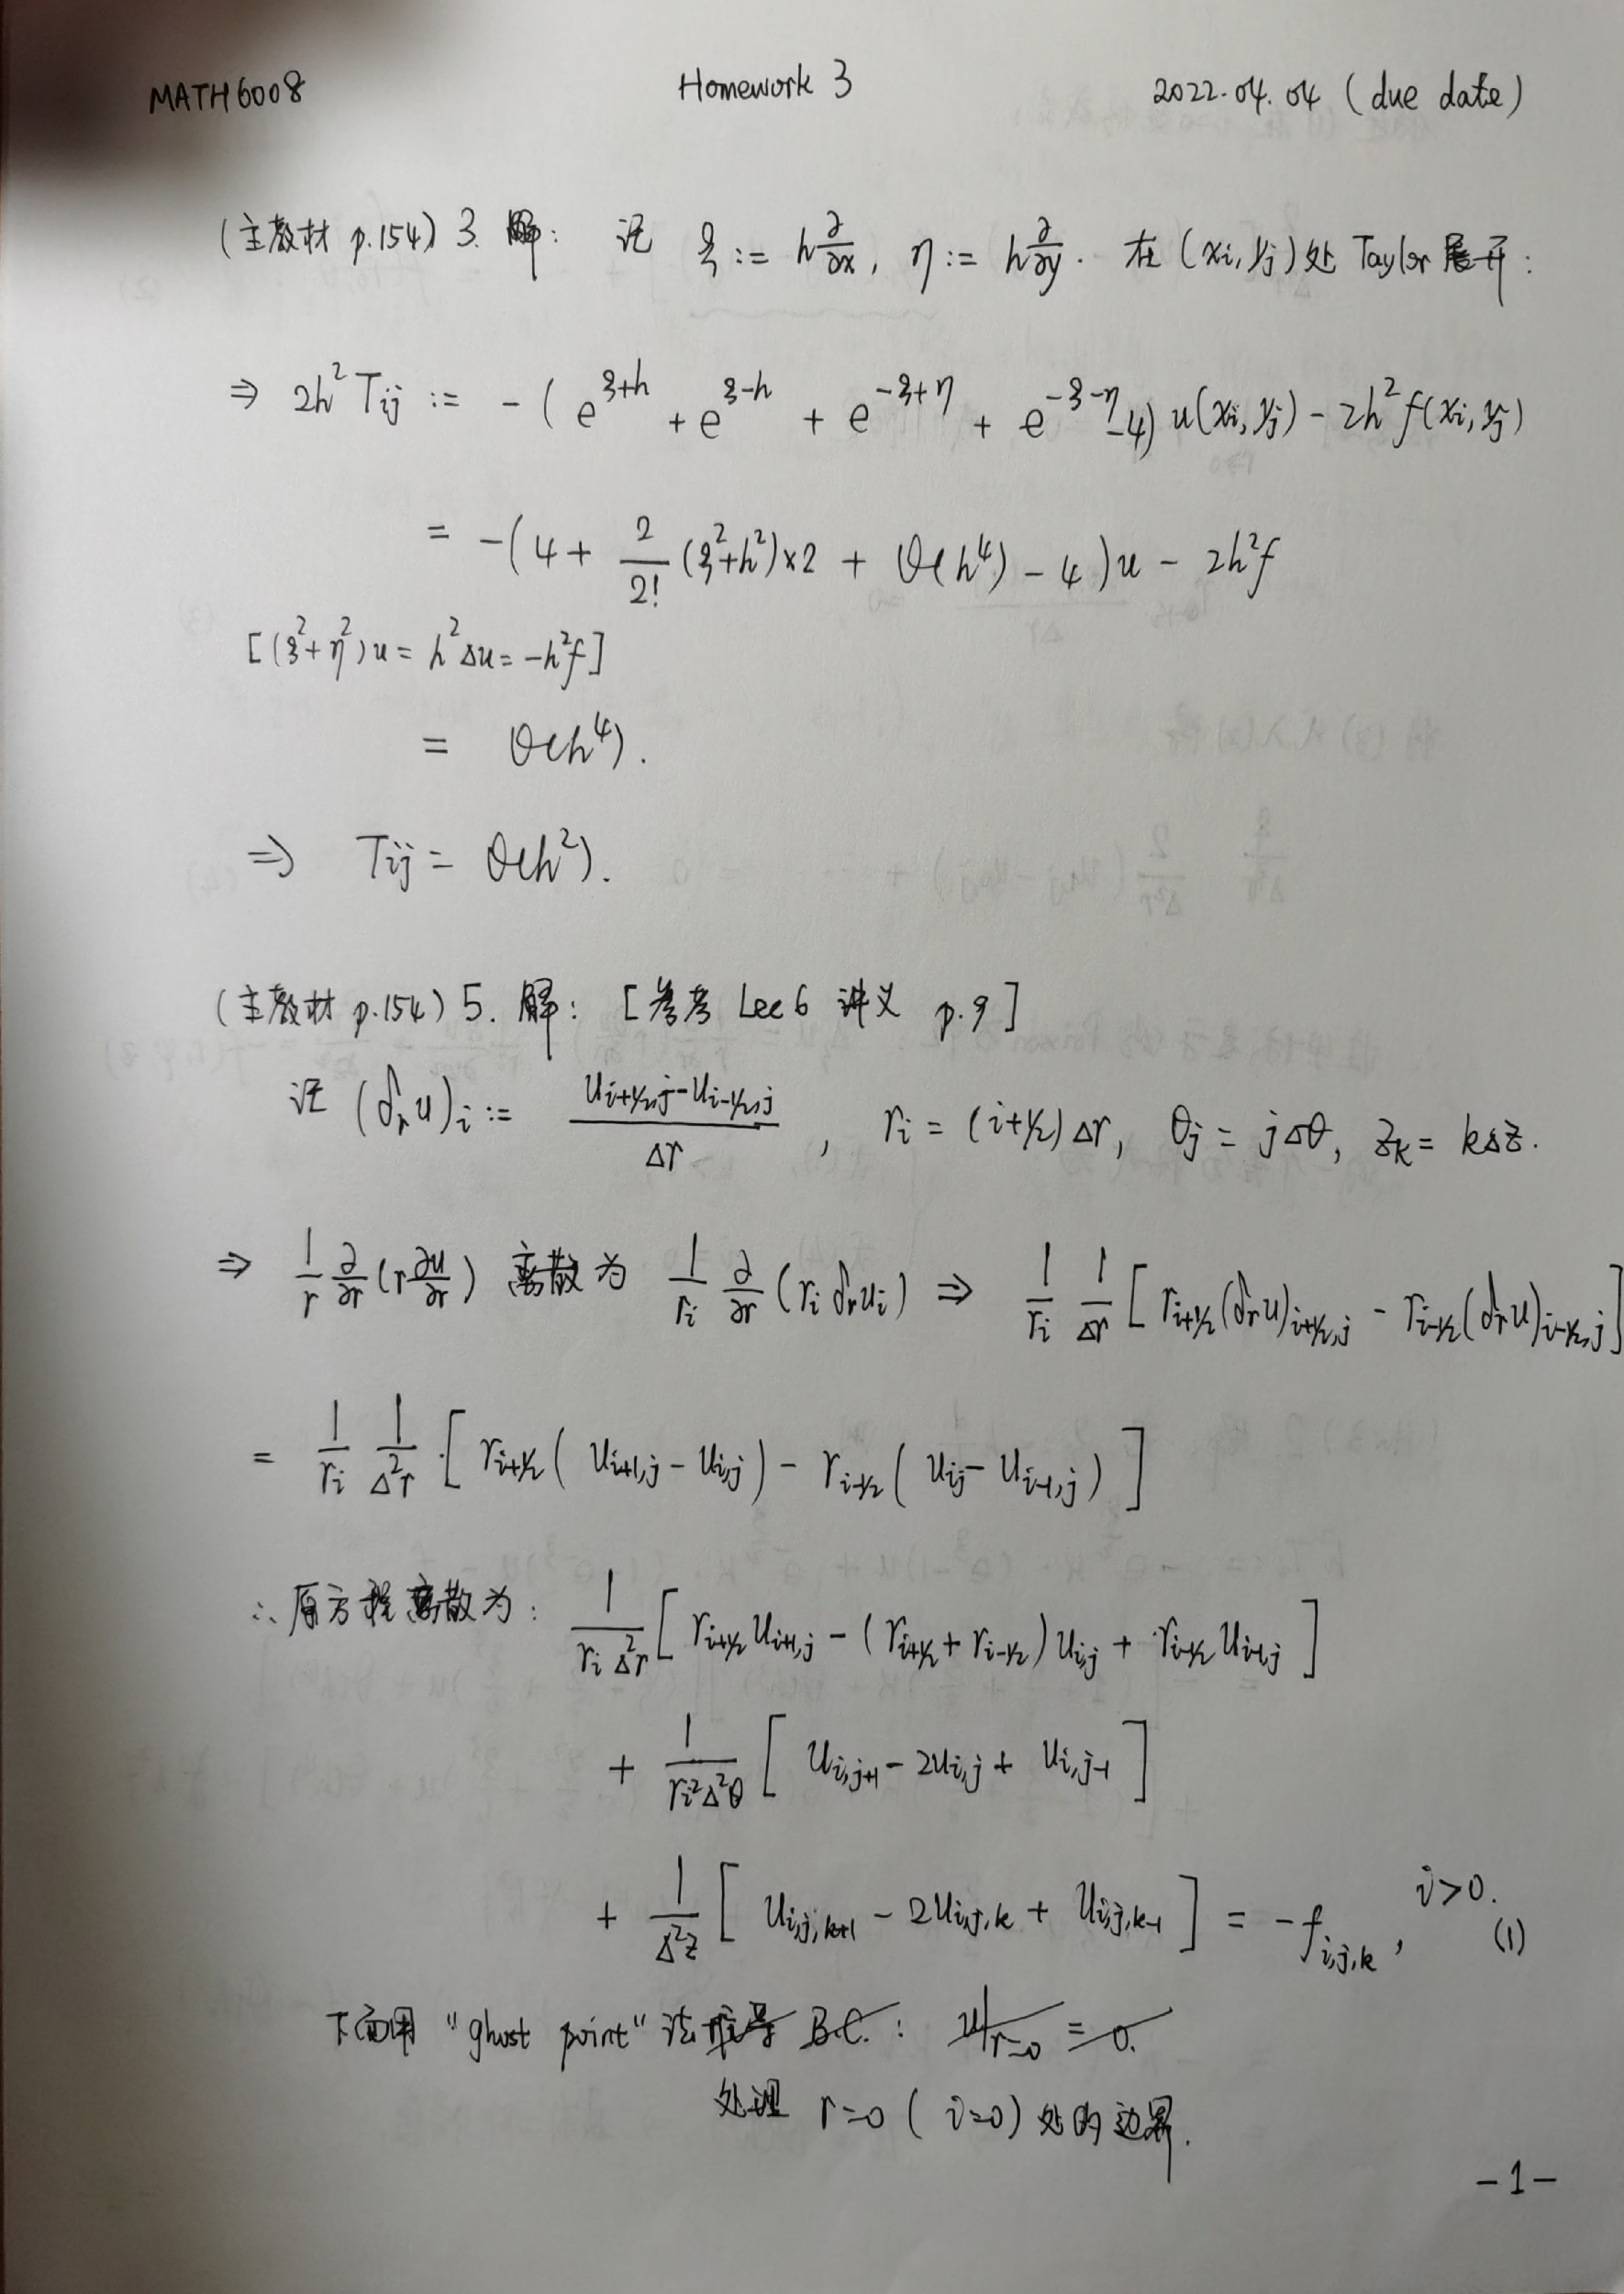 MATH6008 Homework 3 2022.04.04 (due date)
(主教材 p.154) 3. 解: 记 ξ := h ∂/∂x, η := h ∂/∂y. 在 (xi, yj) 处 Taylor 展开:
⇒ 2h² Tij := -( e^{ξ+h} + e^{ξ-h} + e^{-ξ+η} + e^{-ξ-η} -4) u(xi, yj) - 2h² f(xi, yj)
= -(4 + 2/2! (ξ²+h²)×2 + O(h⁴) - 4)u - 2h²f
[(ξ²+η²)u = h²Δu = -h²f]
= O(h⁴).
⇒ Tij = O(h²).
(主教材 p.154) 5. 解: [参考 Lec6 讲义 p.9]
记 (δr u)i := (u_{i+1/2,j} - u_{i-1/2,j})/Δr, ri = (i+1/2)Δr, θj = jΔθ, zk = kΔz.
⇒ 1/r ∂/∂r (r ∂u/∂r) 离散为 1/ri ∂/∂r (ri δr ui) ⇒ 1/ri 1/Δr [ r_{i+1/2}(δr u)_{i+1/2,j} - r_{i-1/2}(δr u)_{i-1/2,j} ]
= 1/ri 1/Δ²r · [ r_{i+1/2}( u_{i+1,j} - u_{i,j}) - r_{i-1/2}( u_{ij} - u_{i-1,j}) ]
∴ 原方程离散为: 1/(ri Δ²r) [ r_{i+1/2} u_{i+1,j} - (r_{i+1/2} + r_{i-1/2}) u_{i,j} + r_{i-1/2} u_{i-1,j} ]
+ 1/(ri²Δ²θ) [ u_{i,j+1} - 2u_{i,j} + u_{i,j-1} ]
+ 1/Δ²z [ u_{i,j,k+1} - 2u_{i,j,k} + u_{i,j,k-1} ] = -f_{i,j,k}, i>0. (1)
下面用 "ghost point" 法推导 B.C.: u|_{r=0} = 0.
处理 r=0 ( i=0) 处的边界.
-1-